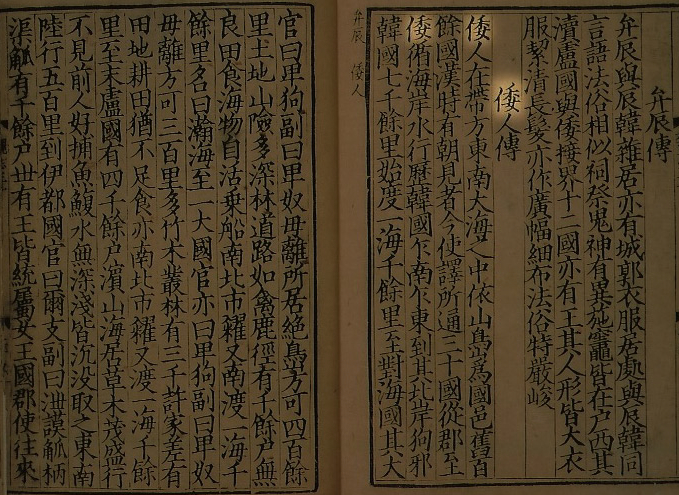 弁辰傳
弁辰與辰韓雜居亦有城郭衣服居處與辰韓同
言語法俗相似祠祭鬼神有異施竈皆在戶西其
瀆盧國與倭接界十二國亦有王其人形皆大衣
服絜清長髮亦作廣幅細布法俗特嚴峻
倭人傳
倭人在帶方東南大海之中依山島爲國邑舊百
餘國漢時有朝見者今使譯所通三十國從郡至
倭循海岸水行歷韓國乍南乍東到其北岸狗邪
韓國七千餘里始度一海千餘里至對海國其大
弁辰 倭人
官曰卑狗副曰卑奴毋離所居絶島方可四百餘
里土地山險多深林道路如禽鹿徑有千餘戶無
良田食海物自活乗船南北市糴又南渡一海千
餘里名曰瀚海至一大國官亦曰卑狗副曰卑奴
毋離方可三百里多竹木叢林有三千許家差有
田地耕田猶不足食亦南北市糴又渡一海千餘
里至末盧國有四千餘戶濵山海居草木茂盛行
不見前人好捕魚鰒水無深淺皆沉没取之東南
陸行五百里到伊都國官曰爾支副曰泄謨觚柄
渠觚有千餘戶丗有王皆統屬女王國郡使往來